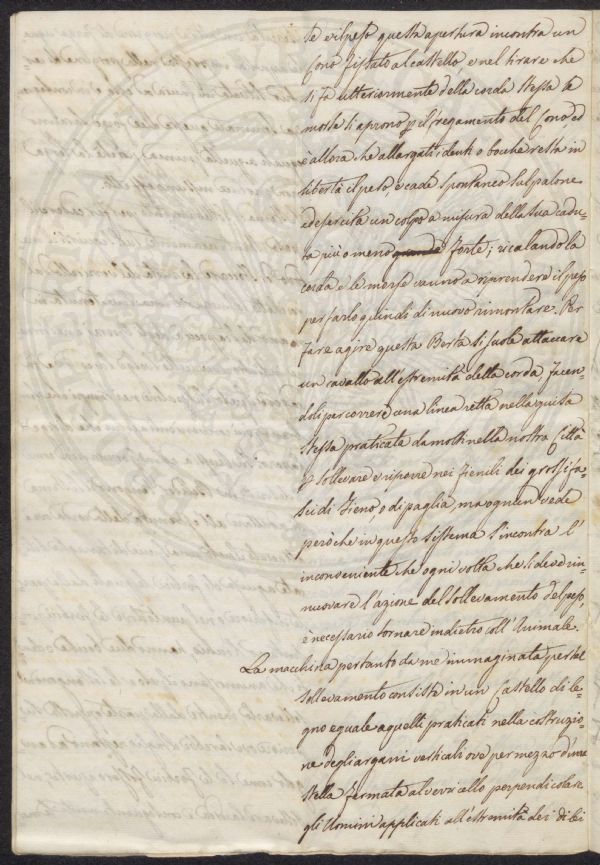 te il peso questa apertura incontra un
Cono fissato al castello e nel tirare che
si fa ulteriormente della corda stessa la
morsa si aprono p il fregamento del Cono ed
è allora che allargati i denti o bocche resta in
libertà il peso, e cade spontaneo sul palone
ed esercita un colpo a misura della sua cadu-
ta più o meno grande forte; e calando la
corda e le morse vanno a riprendere il peso
per farlo quindi di nuovo rimontare. Per
fare agire questa Berta si suole attaccare
un cavallo all'estremità della corda, facen-
doli percorrere una linea retta nella guisa
stessa praticata da molti nella nostra Città
p sollevare e riporre nei fienili dei grossi fa-
sci di fieno, o di paglia, ma ognun vede
però che in questo sistema s'incontra l'
inconveniente che ogni volta che si deve rin-
nuovare l'azione del sollevamento del peso,
è necessario tornare indietro coll'Animale.
La macchina pertanto da me immaginata per tal
sollevamento consiste in un Castello di le-
gno eguale a quelli praticati nella costruzio-
ne degli argani verticali ove per mezzo d'una
stella fermata al verricello perpendicolare
gli Uomini applicati all'estremità dei di lei